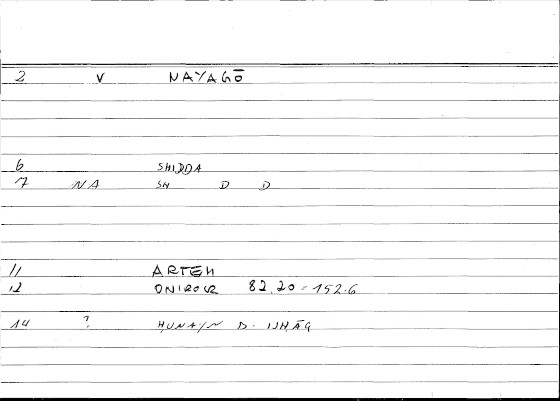 2 V NAYAGŌ
6 SHIDDA
7 NA SH D D
11 ARTEH
12 ONIROCR 82,20-152.6
14 ? HUNAYN B. ISHĀQ